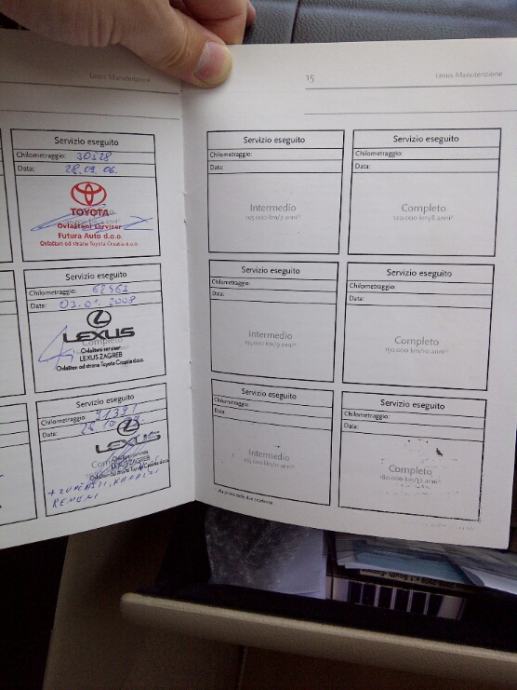 Lexus Manutenzione
Servizio eseguito
Chilometraggio: 30328
Data: 28.09.06.
TOYOTA
Ovlašteni serviser
Futura Auto d.o.o.
Ovlašten od strane Toyota Croatia d.o.o.
Servizio eseguito
Chilometraggio:
Data: 03.01.2008
LEXUS
Completo
Ovlašteni serviser
LEXUS ZAGREB
Ovlašten od strane Toyota Croatia d.o.o.
Servizio eseguito
Chilometraggio:
Data:
LEXUS
LEXUS ZAGREB
15
Lexus Manutenzione
Servizio eseguito
Chilometraggio:
Data:
Intermedio
105.000 km/7 anni
Servizio eseguito
Chilometraggio:
Data:
Completo
120.000 km/8 anni
Servizio eseguito
Chilometraggio:
Data:
Intermedio
Servizio eseguito
Chilometraggio:
Data:
Completo
150.000 km/10 anni
Servizio eseguito
Chilometraggio:
Data:
Intermedio
Servizio eseguito
Chilometraggio:
Data:
Completo
180.000 km/12 anni